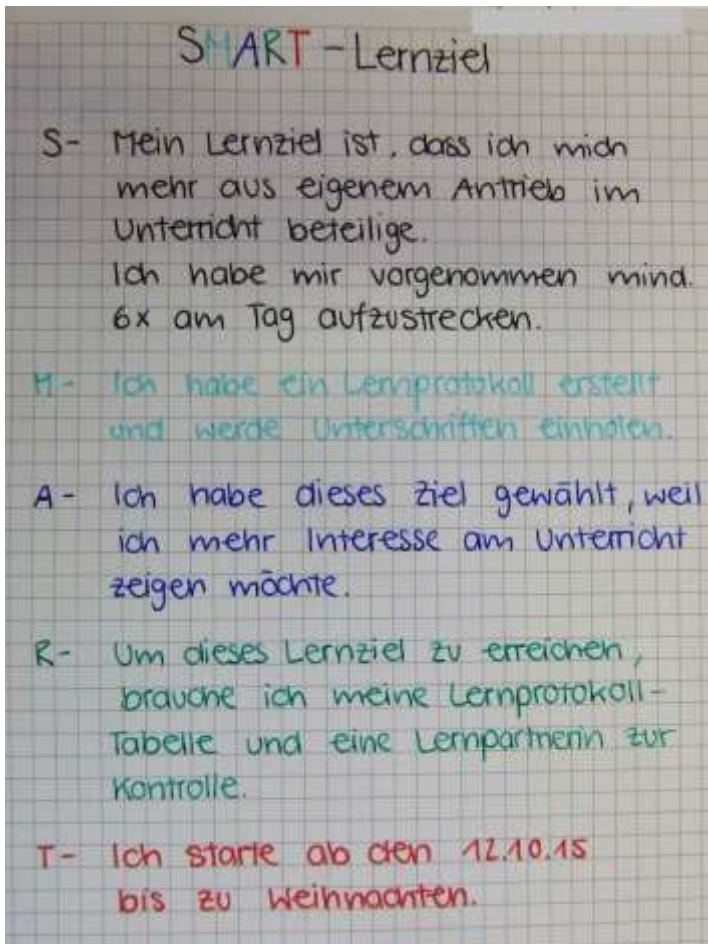 SMART-Lernziel
S- Mein Lernziel ist, dass ich mich
mehr aus eigenem Antrieb im
Unterricht beteilige.
Ich habe mir vorgenommen mind.
6x am Tag aufzustrecken.
M- Ich habe ein Lernprotokoll erstellt
und werde Unterschriften einholen.
A- Ich habe dieses Ziel gewählt, weil
ich mehr Interesse am Unterricht
zeigen möchte.
R- Um dieses Lernziel zu erreichen,
brauche ich meine Lernprotokoll-
Tabelle und eine Lernpartnerin zur
Kontrolle.
T- Ich starte ab den 12.10.15
bis zu Weihnachten.